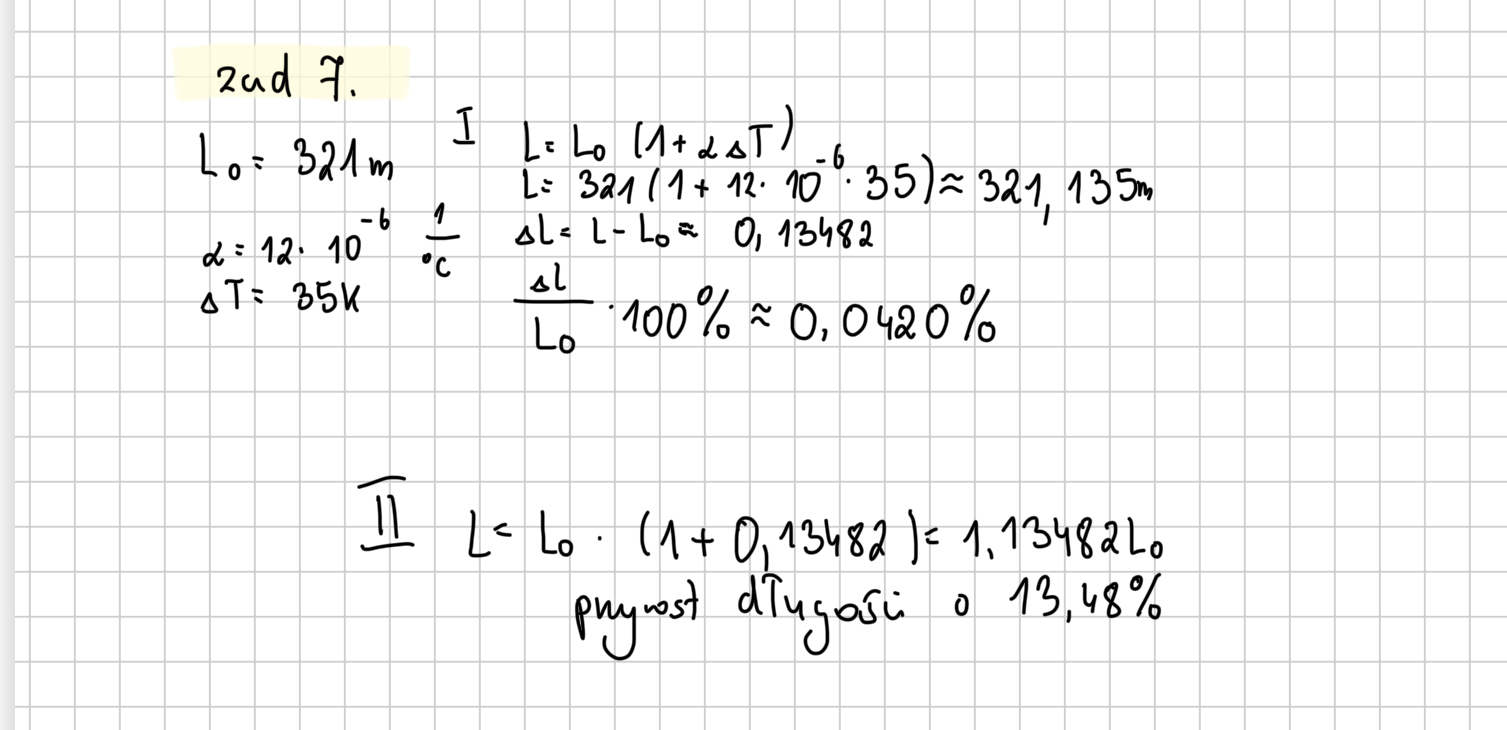 zad 7.
L₀ = 321m
α = 12 · 10⁻⁶ 1/°C
ΔT = 35K
I L = L₀ (1 + αΔT)
L = 321 (1 + 12 · 10⁻⁶ · 35) ≈ 321,135m
ΔL = L - L₀ ≈ 0,13482
Δl/L₀ · 100% ≈ 0,0420%
II L = L₀ · (1 + 0,13482) = 1,13482L₀
przyrost długości o 13,48%